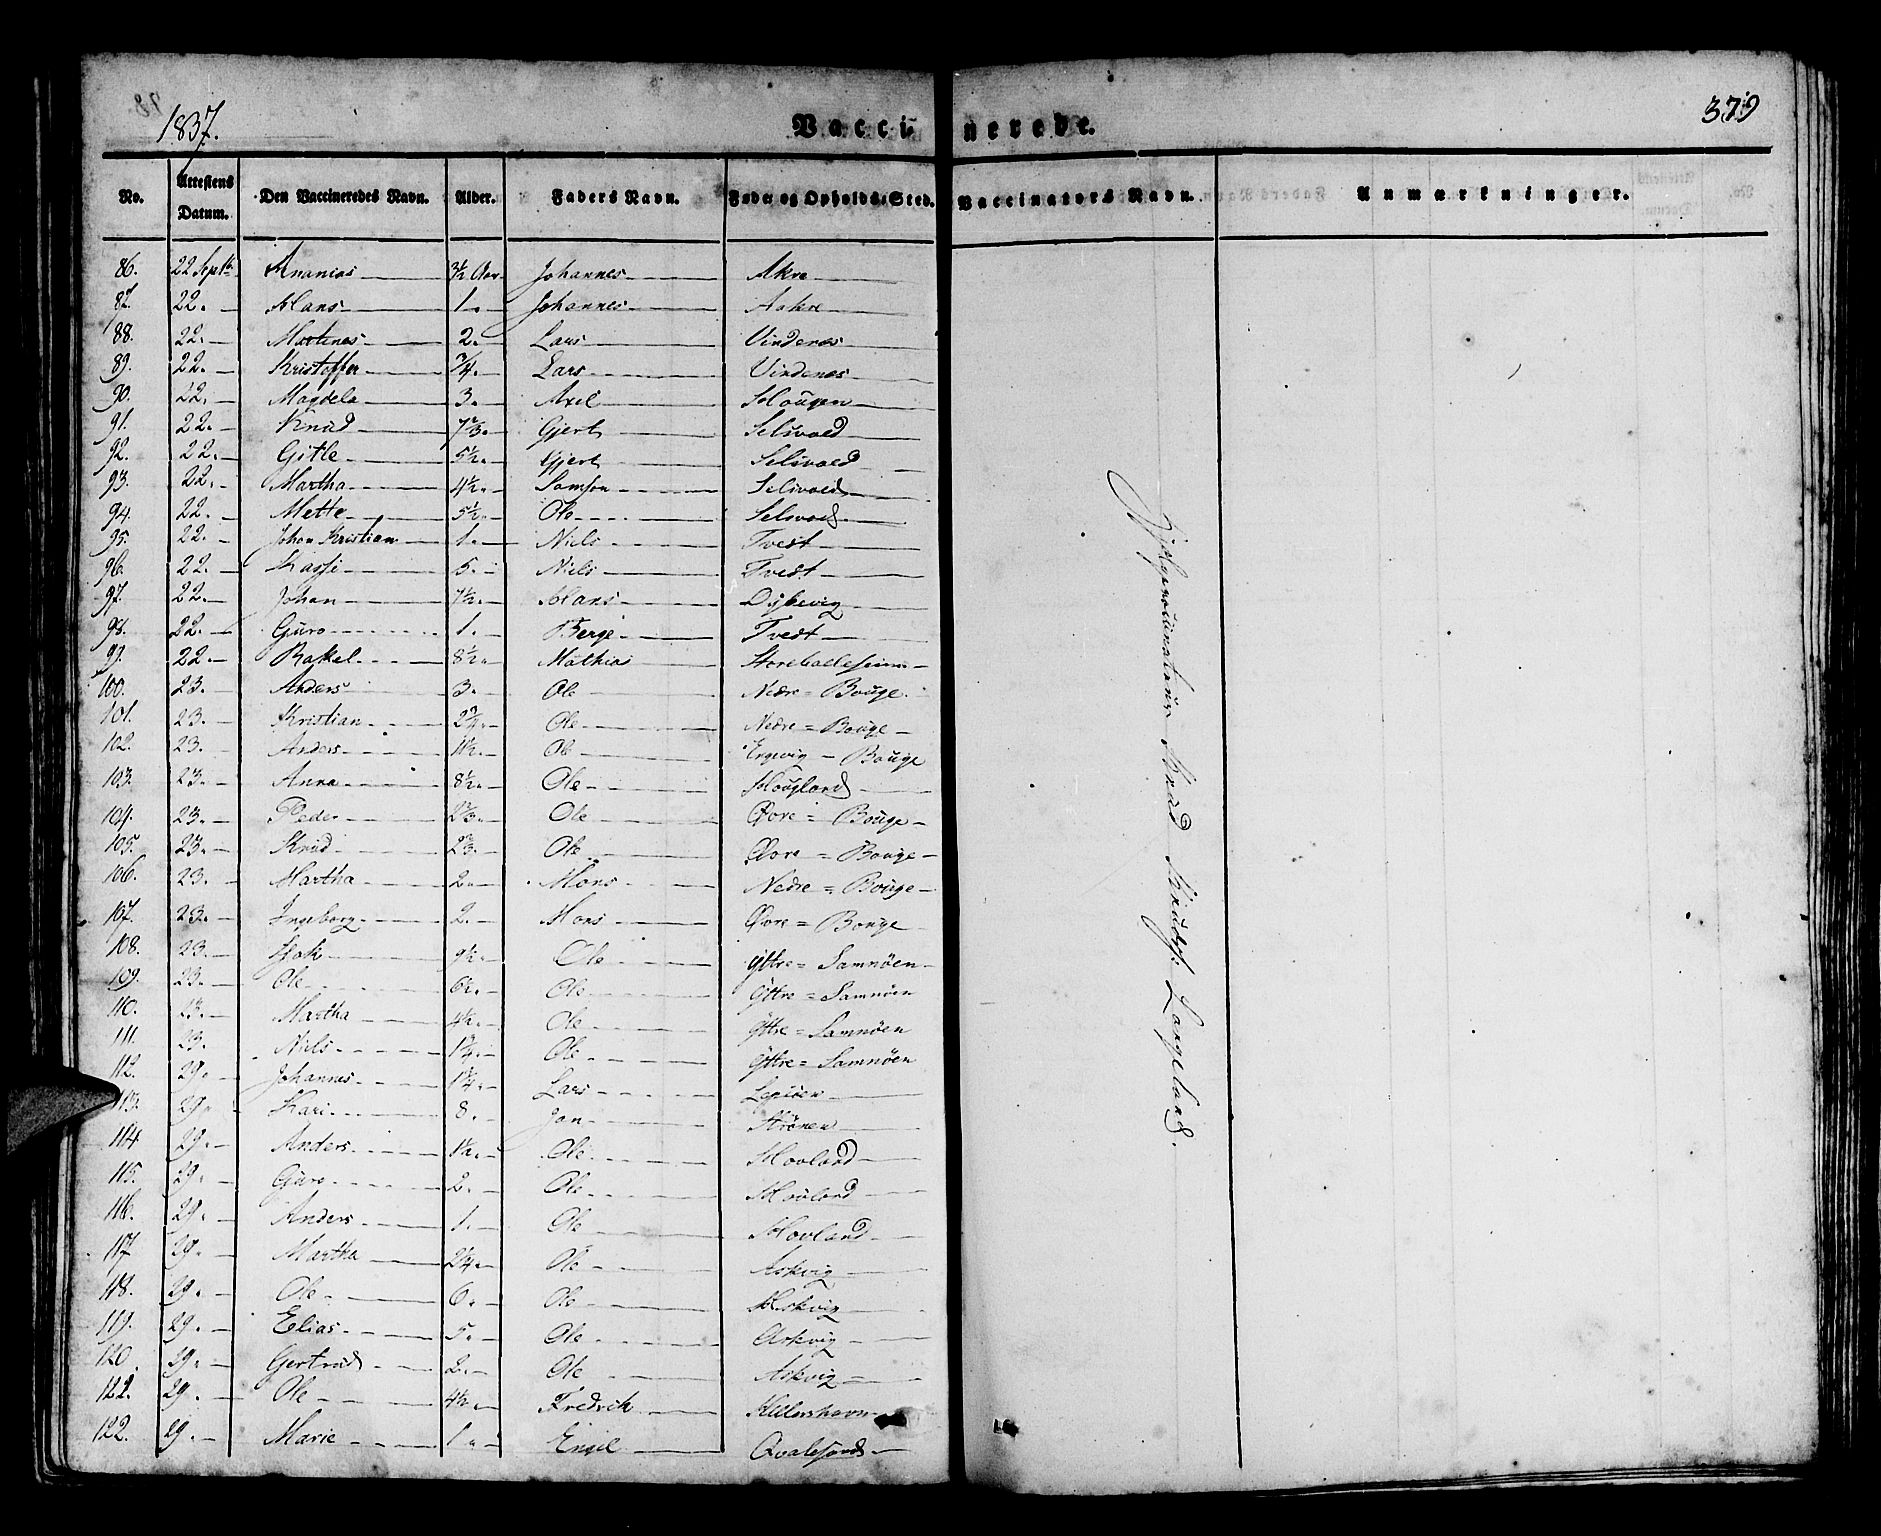 1837.
Vaccinerede.
379
No. Attestens Datum. Den Vaccineredes Navn. Alder. Faders Navn. Føde og Opholds-Sted. Vaccinators Navn. Anmærkninger.
86. 22 Septb Ananias 3½ Aar Johannes Akre
87. 22. Hans 1. Johannes Aakre
88. 22. Martines 2. Lars Vindenes
89. 22. Kristoffer ¾. Lars Vindenes
90. 22. Magdela 3. Axel Hougen
91. 22. Knud 7⅔. Gjert Selsvoed
92. 22. Gitle 5½. Gjert Selsvoed
93. 22. Martha 4½. Samson Selsvoed
94. 22. Mette 5½. Ole Selsvoed
95. 22. Johan Kristian 1. Niels Tvedt
96. 22. Kassi 5. Niels Tvedt
97. 22. Johan 7½. Hans Dybevig
98. 22. Guro 1. Berge Tvedt
99. 22 Rakel 8½. Mathias Storekallesein
100. 23. Anders 3. Ole Nedre = Bouge
101. 23. Kristian 2¾. Ole Nedre = Bouge
102. 23. Anders 1½. Ole Ergevig - Bouge
103. 23. Anna 8½. Ole Hougland
104. 23. Peder 2⅔. Ole Øvre = Bouge
105. 23. Knud 2⅔. Ole Øvre = Bouge
106. 23. Martha 2. Mons Nedre = Bouge
107. 23. Ingeborg 2. Mons Øvre = Bouge
108. 23. Isak 9½. Ole Yttre = Samnøen
109. 23. Ole 6½. Ole Yttre = Samnøen
110. 23. Martha 4½. Ole Yttre = Samnøen
111. 23. Niels 1¾. Ole Yttre = Samnøen
112. 29. Johannes 1¾. Lars Lepsøen
113. 29. Kari 8. Jan Strønen
114 29. Anders 1½. Ole Hovland
115. 29. Guro 2. Ole Hovland
116. 29. Anders 1. Ole Hovland
117 29. Martha 2¼. Ole Askvig
118. 29. Ole 6. Ole Askvig
119. 29. Elias 5. Ole Askvig
120 29. Gertrud 2. Ole Askvig
122. 29. Ole 4½. Fredrich
122. 29. Marie 1. Engel Qvalesand
Hjelpevaccinateur Knud Knuds. Langeland.